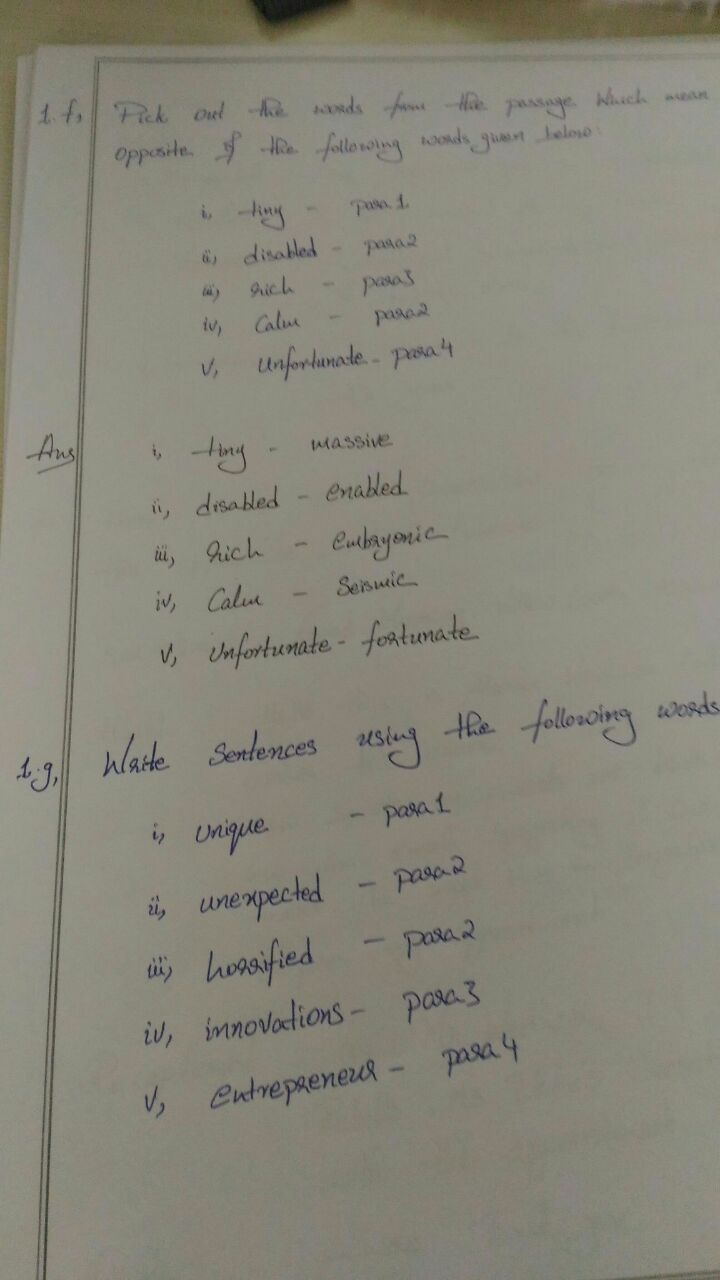 1.f, Pick out the words from the passage which mean
opposite of the following words given below:
i, tiny - para 1
ii, disabled - para2
iii, rich - para3
iv, Calm - para2
v, Unfortunate - para4
Ans
i, tiny - massive
ii, disabled - enabled
iii, rich - embryonic
iv, Calm - Seismic
v, Unfortunate - fortunate
1.g, Write Sentences using the following words
i, Unique - para1
ii, unexpected - para2
iii, horrified - para2
iv, innovations - para3
v, entrepreneur - para4